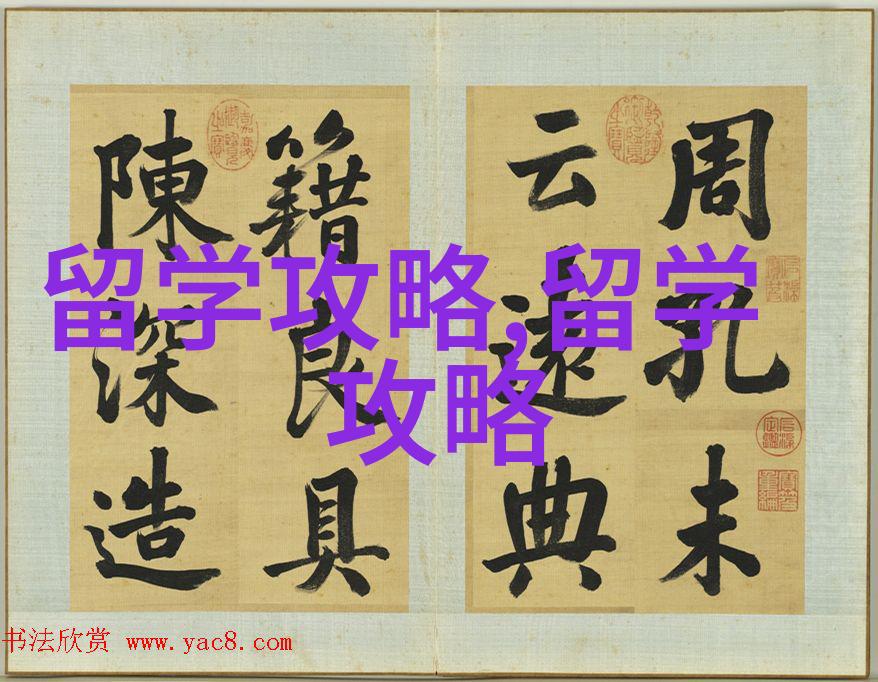 周孔未
云遠典
籍良具
陳深造
留学攻略,留学
攻略
书法欣赏 www.yac8.com